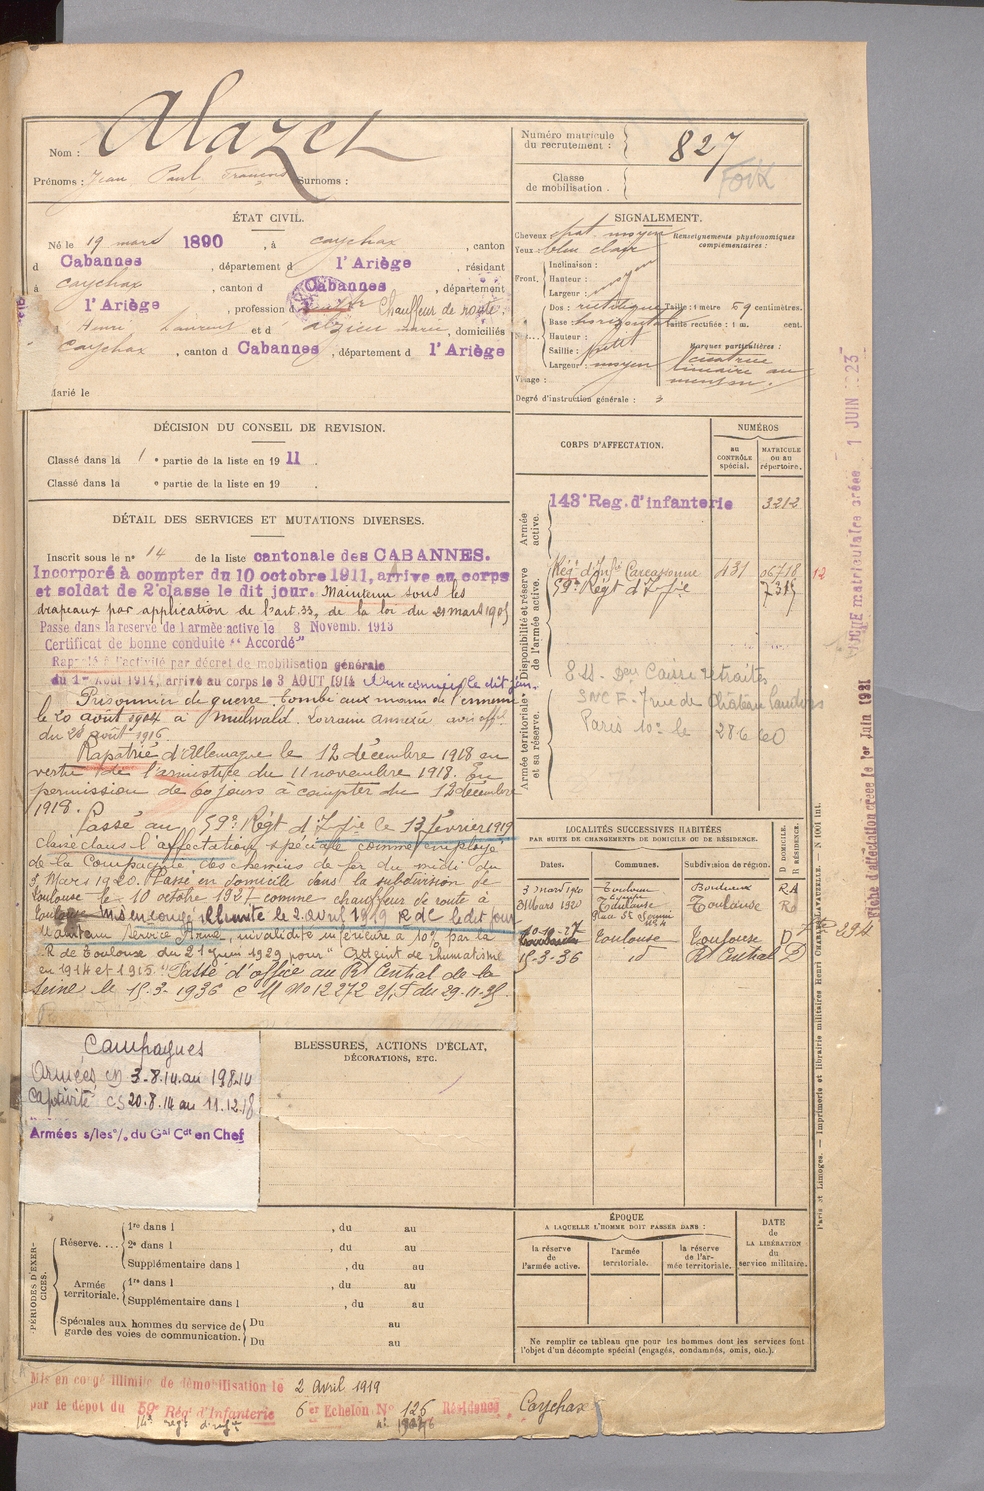 Nom : Alazet
Prénoms : Jean Paul François Surnoms :
Numéro matricule du recrutement : 827
Classe de mobilisation .
Foix
ÉTAT CIVIL.
Né le 19 mars 1890, à Caychax, canton
d Cabannes, département d l'Ariège, résidant
à Caychax, canton d Cabannes, département
l'Ariège, profession d Chauffeur de route.
Henri Laurent et d Marie, domiciliés
Caychax, canton d Cabannes, département d l'Ariège
Marié le
SIGNALEMENT.
Cheveux chat. moyen
Yeux : bleu clair
Renseignements physionomiques complémentaires :
Front,
Inclinaison :
Hauteur : moyen
Largeur :
Nez..
Dos : rectiligne
Base : horizontale
Hauteur :
Saillie : petit
Largeur : moyen
Taille : 1 mètre 59 centimètres.
Taille rectifiée : 1 m. cent.
Marques particulières :
Cicatrice
linéaire au
menton.
Visage :
Degré d'instruction générale : 3
DÉCISION DU CONSEIL DE REVISION.
Classé dans la 1e partie de la liste en 1911.
Classé dans la e partie de la liste en 19 .
DÉTAIL DES SERVICES ET MUTATIONS DIVERSES.
Inscrit sous le no 14 de la liste cantonale des CABANNES.
Incorporé à compter du 10 octobre 1911, arrive au corps
et soldat de 2e classe le dit jour. Maintenu sous les
drapeaux par application de l'art. 33, de la loi du 21 mars 1905
Passé dans la réserve de l'armée active le 8 Novemb. 1913
Certificat de bonne conduite "Accordé"
Rappelé à l'activité par décret de mobilisation générale
du 1er Août 1914, arrivé au corps le 3 AOUT 1914 le dit jour.
Prisonnier de guerre. Tombé aux mains de l'ennemi
le 20 août 1914 à Lorraine annexée avis off.
du 28 août 1916.
Rapatrié d'Allemagne le 12 décembre 1918 en
vertu de l'armistice du 11 novembre 1918. En
permission de 60 jours à compter du 12 décembre
1918. Passé au 59e Régt d'Inf.ie le 13 février 1919
Classé dans l'affectation spéciale comme employé
de la Compagnie des chemins de fer du midi du
3 Mars 1920. Passé en domicile dans la subdivision de
Toulouse le 10 octobre 1927 comme chauffeur de route à
Toulouse. Mis en congé illimité le 2 avril 1919 R de C le dit jour
Maintenu Service Armé, invalidité inférieure à 10% par la
C.R de Toulouse du 21 juin 1929 pour "Atteint de rhumatisme
en 1914 et 1915." Passé d'office au Rt Central de la
Seine le 15-3-1936 C M No 12272 du 29-11-35.
CORPS D'AFFECTATION.
NUMÉROS
au CONTRÔLE spécial.
MATRICULE ou au répertoire.
Armée active.
143e Reg. d'infanterie 3212
Disponibilité et réserve de l'armée active.
Rég. d'Inf.ie Carcassonne 431 06718
12
59e Régt d'Inf.ie
Armée territoriale et sa réserve.
Caisse retraités
SNCF. 7 rue de Château Landon
Paris 10e le
LOCALITÉS SUCCESSIVES HABITÉES
PAR SUITE DE CHANGEMENTS DE DOMICILE OU DE RÉSIDENCE.
Dates. Communes. Subdivision de région. D DOMICILE. R RÉSIDENCE.
3 mars 1920 Toulouse Bordeaux R A
3 Mars 1920 Toulouse Toulouse R
10-10-27 Toulouse Toulouse D
15-3-36 id Rt Central D
Campagnes
Armées CD 3.8.14 au 19 8 14
Captivité CS 20.8.14 au 11.12.18
Armées s/les o/. du Gal Cdt en Chef
BLESSURES, ACTIONS D'ÉCLAT,
DÉCORATIONS, ETC.
PÉRIODES D'EXERCICES.
Réserve....
1re dans l , du au
2e dans l , du au
Supplémentaire dans l , du au
Armée territoriale.
1re dans l , du au
Supplémentaire dans l , du au
Spéciales aux hommes du service de garde des voies de communication.
Du au
Du au
ÉPOQUE
A LAQUELLE L'HOMME DOIT PASSER DANS :
la réserve de l'armée active.
l'armée territoriale.
la réserve de l'armée territoriale.
DATE de LA LIBÉRATION du service militaire.
Ne remplir ce tableau que pour les hommes dont les services font
l'objet d'un décompte spécial (engagés, condamnés, omis, etc.).
Mis en congé illimité de démobilisation le 2 Avril 1919
par le dépôt du 59e Rég. d'Infanterie 6er Echelon No 126 Résidence Caychax
Paris et Limoges. — Imprimerie et librairie militaires Henri CHARLES-LAVAUZELLE. — N 1001 int.
Fiche d'affectation créée le 1er Juin 1931